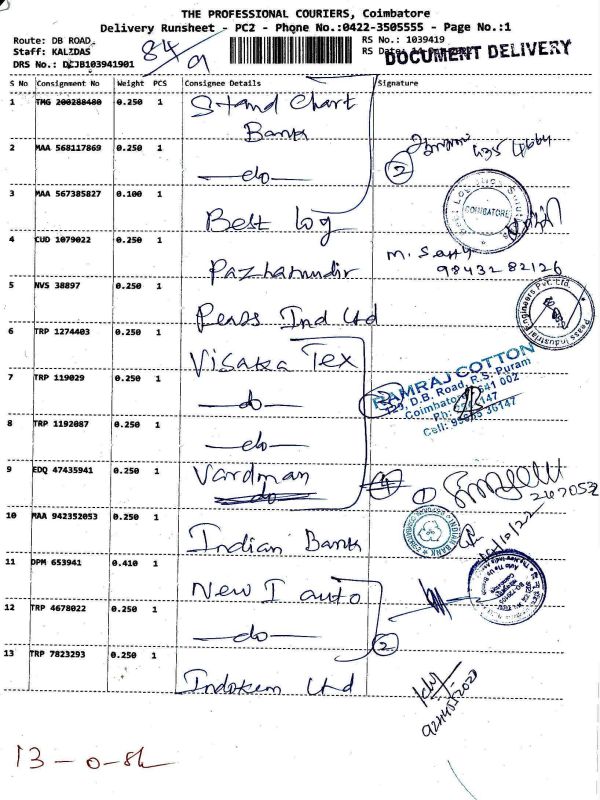 THE PROFESSIONAL COURIERS, Coimbatore
Delivery Runsheet - PC2 - Phone No.:0422-3505555 - Page No.:1
Route: DB ROAD
Staff: KALIDAS
DRS No.: DCJB103941901
84/9
RS No.: 1039419
RS Date:
DOCUMENT DELIVERY
S No Consignment No Weight PCS Consignee Details Signature
1 TMG 200288480 0.250 1 Stand Chart Bank
2 MAA 568117869 0.250 1 —do— 2
3 MAA 567385827 0.100 1 Best log
COIMBATORE
4 CUD 1079022 0.250 1 Pazhamudir
M.
98432 82126
5 NVS 38897 0.250 1 Peass Ind Ltd
Peass Industrial Engineers Pvt. Ltd.
6 TRP 1274403 0.250 1 Visaka Tex
7 TRP 119029 0.250 1 —do—
RAMRAJ COTTON
129, D.B. Road, R.S. Puram
Coimbatore - 641 002
8 TRP 1192087 0.250 1 —do—
9 EDQ 47435941 0.250 1 Vardman
4 1
10 MAA 942352053 0.250 1 Indian Bank
INDIAN BANK
11 DPM 653941 0.410 1 New I auto
12 TRP 4678022 0.250 1 —do— 2
13 TRP 7823293 0.250 1 Indokem Ltd
13 - 0 - 84